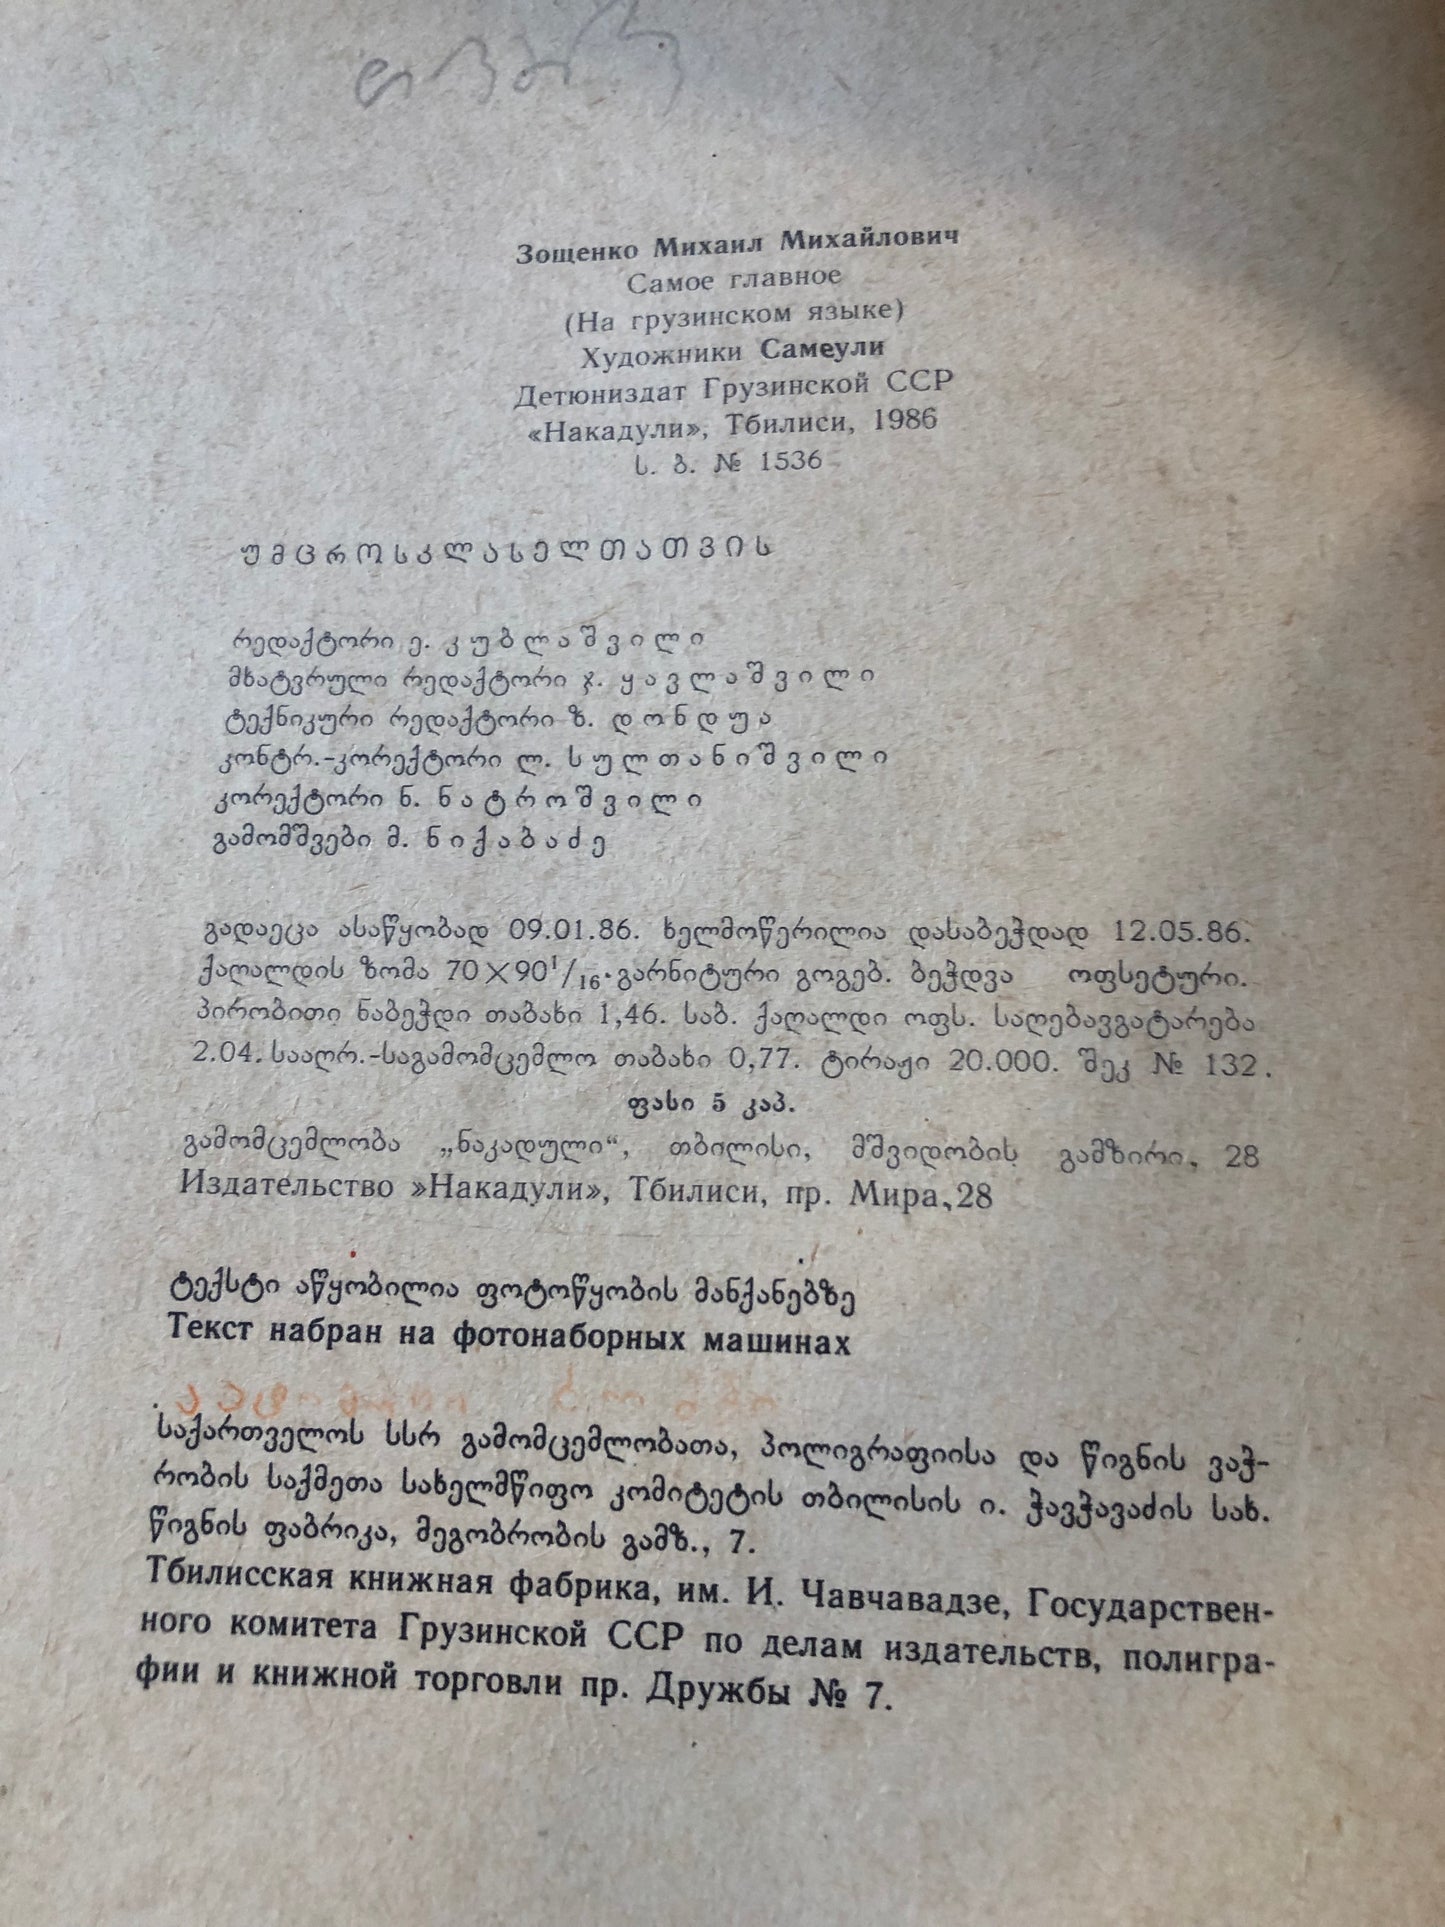 Зощенко Михаил Михайлович
Самое главное
(На грузинском языке)
Художники Самеули
Детюниздат Грузинской ССР
«Накадули», Тбилиси, 1986
ს. ბ. № 1536
უმცროსკლასელთათვის
რედაქტორი ე. კუბლაშვილი
მხატვრული რედაქტორი ჯ. ყავლაშვილი
ტექნიკური რედაქტორი ზ. დონდუა
კონტრ.-კორექტორი ლ. სულთანიშვილი
კორექტორი ნ. ნატროშვილი
გამომშვები მ. ნიქაბაძე
გადაეცა ასაწყობად 09.01.86. ხელმოწერილია დასაბეჭდად 12.05.86.
ქაღალდის ზომა 70×90¹/₁₆. გარნიტური გოგებ. ბეჭდვა ოფსეტური.
პირობითი ნაბეჭდი თაბახი 1,46. საბ. ქაღალდი ოფს. საღებავგატარება
2.04. სააღრ.-საგამომცემლო თაბახი 0,77. ტირაჟი 20.000. შეკ № 132.
ფასი 5 კაპ.
გამომცემლობა „ნაკადული“, თბილისი, მშვიდობის გამზირი, 28
Издательство »Накадули», Тбилиси, пр. Мира,28
ტექსტი აწყობილია ფოტოწყობის მანქანებზე
Текст набран на фотонаборных машинах
საქართველოს სსრ გამომცემლობათა, პოლიგრაფიისა და წიგნის ვაჭ-
რობის საქმეთა სახელმწიფო კომიტეტის თბილისის ი. ჭავჭავაძის სახ.
წიგნის ფაბრიკა, მეგობრობის გამზ., 7.
Тбилисская книжная фабрика, им. И. Чавчавадзе, Государствен-
ного комитета Грузинской ССР по делам издательств, полигра-
фии и книжной торговли пр. Дружбы № 7.